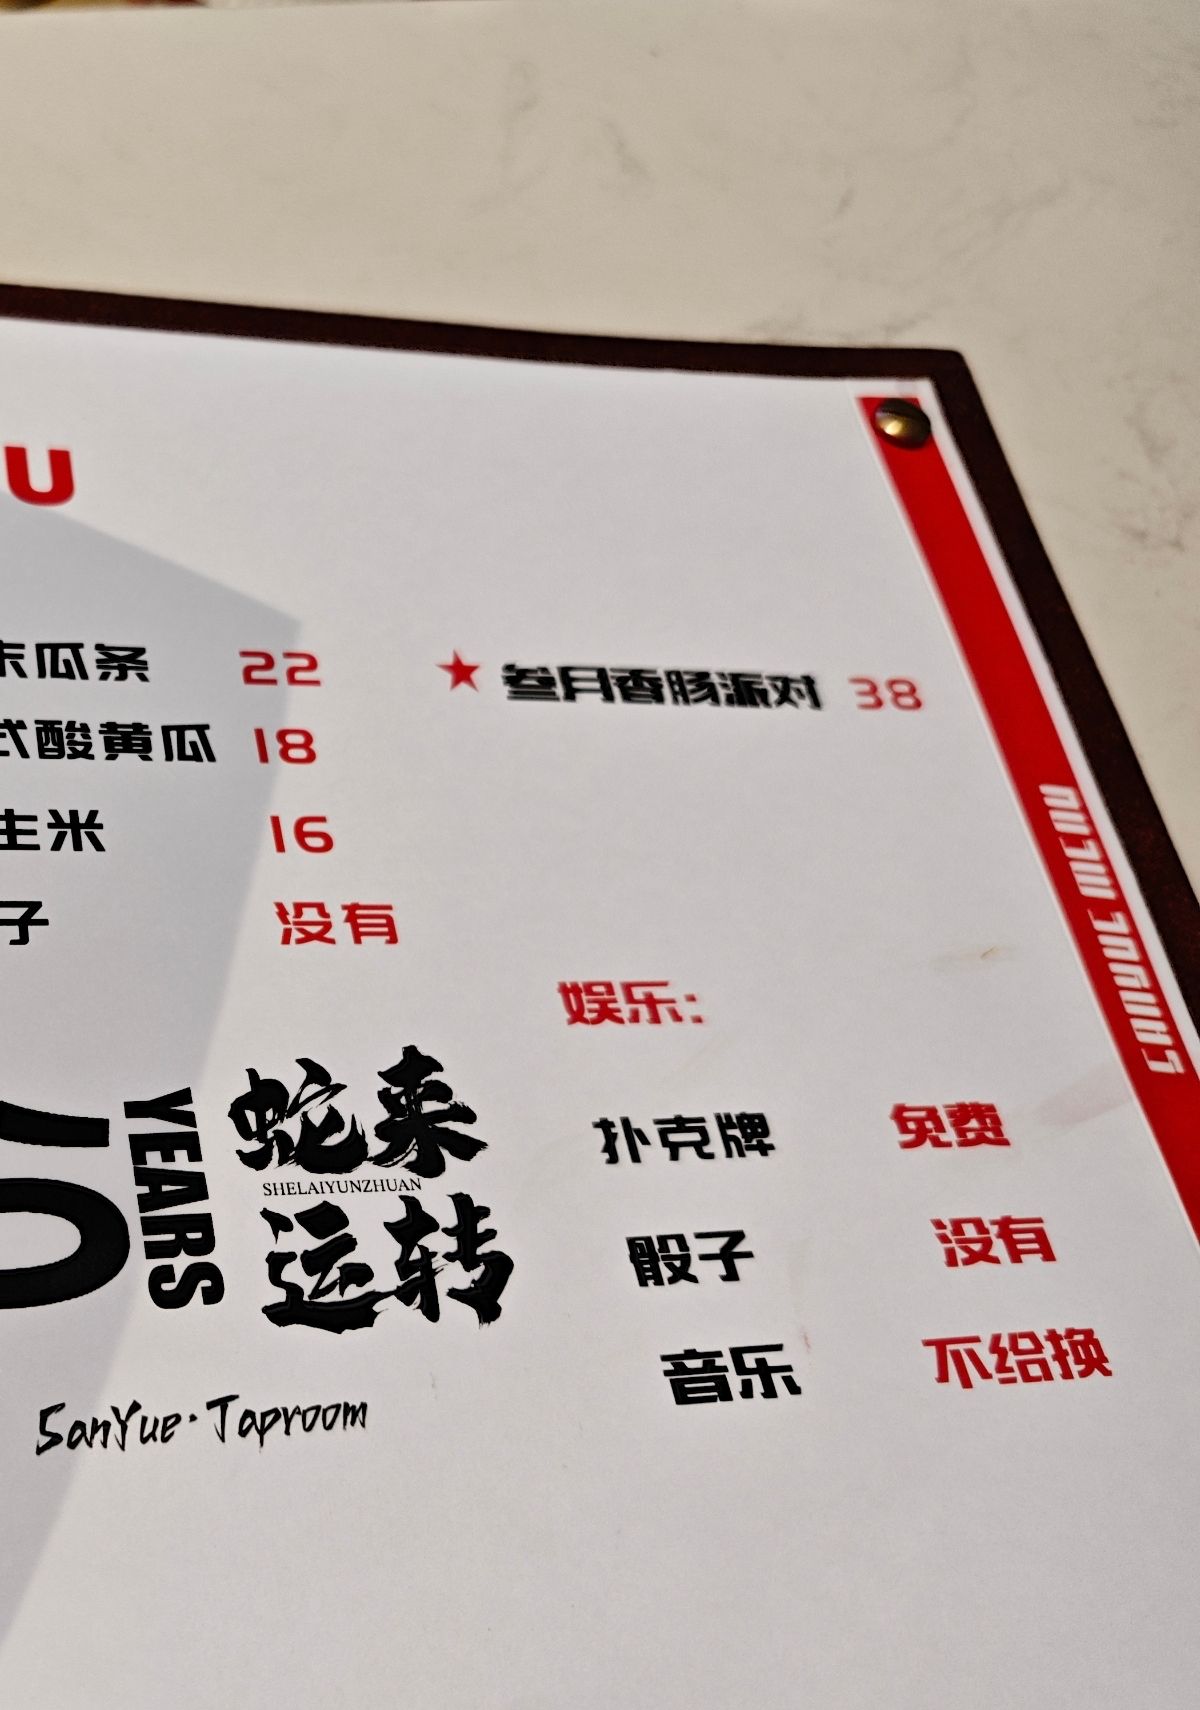 U
末瓜条 22
★叁月香肠派对 38
式酸黄瓜 18
生米 16
子 没有
娱乐：
扑克牌 免费
骰子 没有
音乐 不给换
0
YEARS
蛇来
SHELAIYUNZHUAN
运转
SanYue·Taproom